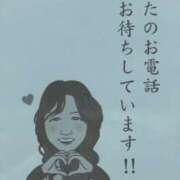 たのお電話
お待ちしています!!